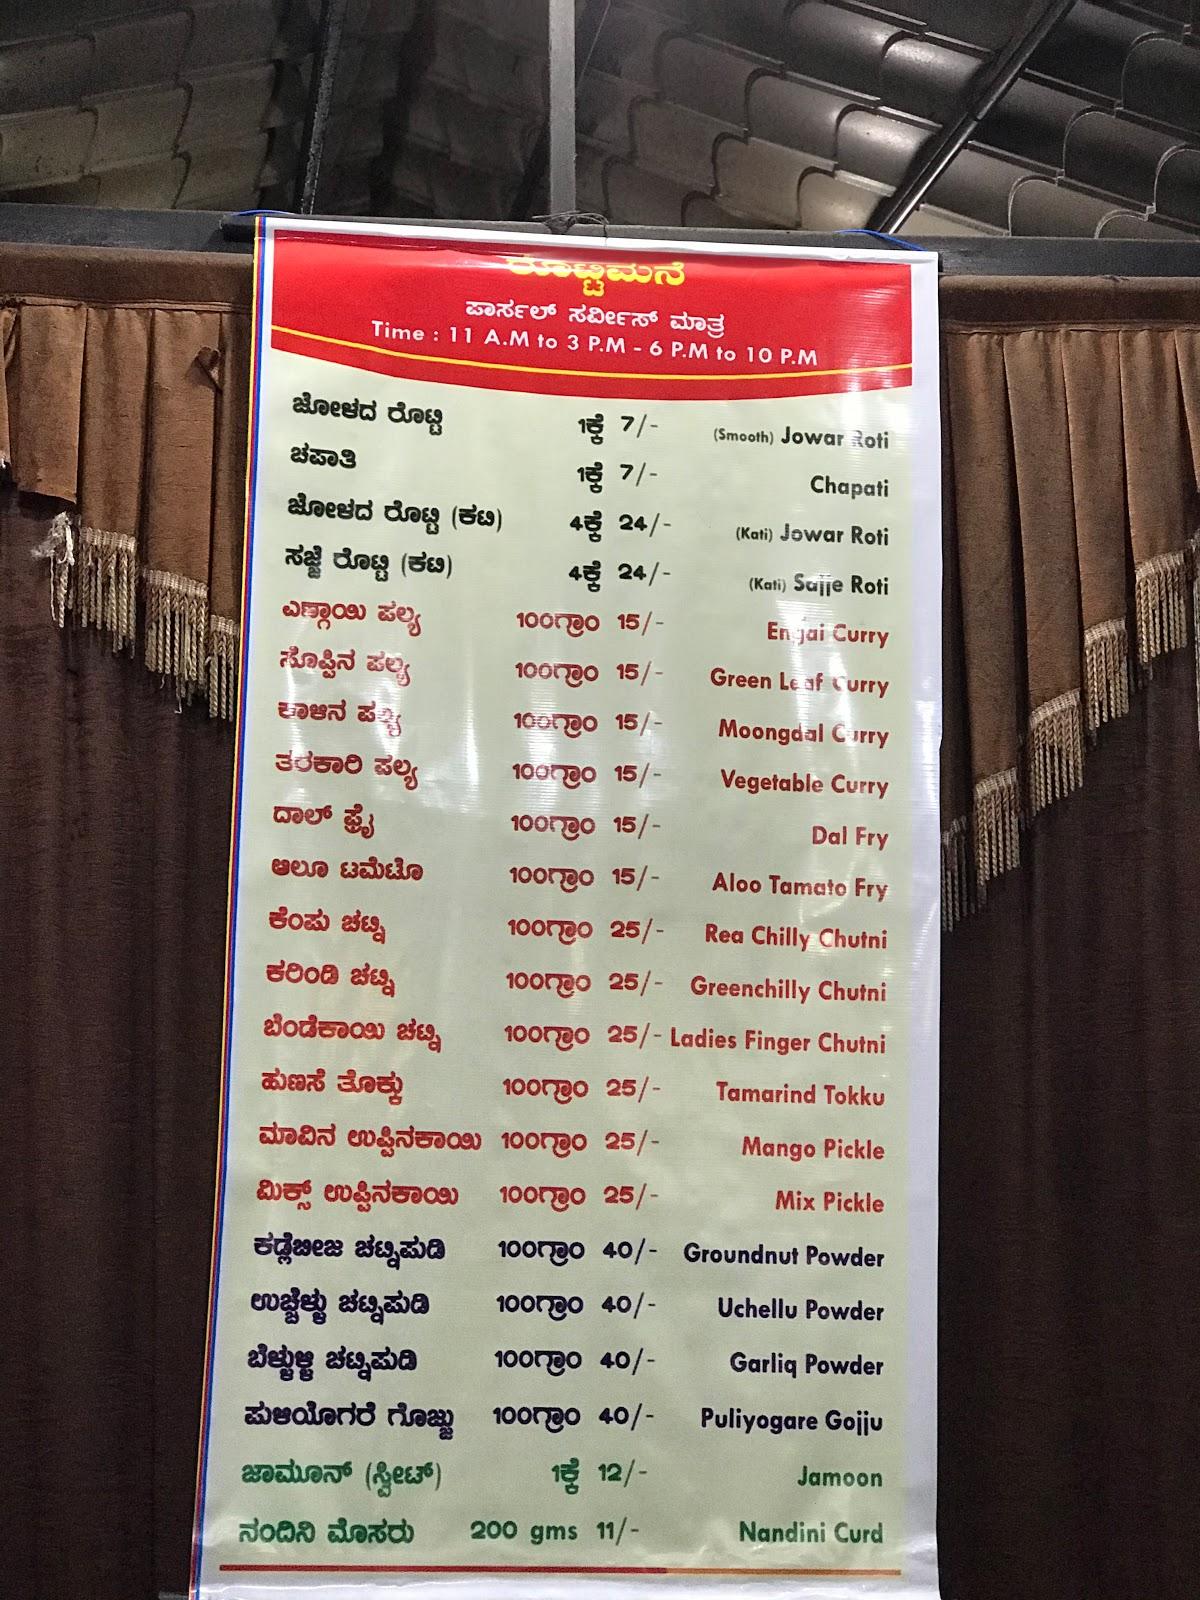 ರೊಟ್ಟಿಮನೆ
ಪಾರ್ಸಲ್ ಸರ್ವೀಸ್ ಮಾತ್ರ
Time : 11 A.M to 3 P.M - 6 P.M to 10 P.M
ಜೋಳದ ರೊಟ್ಟಿ 1ಕ್ಕೆ 7/- (Smooth) Jowar Roti
ಚಪಾತಿ 1ಕ್ಕೆ 7/- Chapati
ಜೋಳದ ರೊಟ್ಟಿ (ಕಟಿ) 4ಕ್ಕೆ 24/- (Kati) Jowar Roti
ಸಜ್ಜೆ ರೊಟ್ಟಿ (ಕಟಿ) 4ಕ್ಕೆ 24/- (Kati) Sajje Roti
ಎಣ್ಗಾಯಿ ಪಲ್ಯ 100ಗ್ರಾಂ 15/- Engai Curry
ಸೊಪ್ಪಿನ ಪಲ್ಯ 100ಗ್ರಾಂ 15/- Green Leaf Curry
ಕಾಳಿನ ಪಲ್ಯ 100ಗ್ರಾಂ 15/- Moongdal Curry
ತರಕಾರಿ ಪಲ್ಯ 100ಗ್ರಾಂ 15/- Vegetable Curry
ದಾಲ್ ಫ್ರೈ 100ಗ್ರಾಂ 15/- Dal Fry
ಆಲೂ ಟಮೆಟೊ 100ಗ್ರಾಂ 15/- Aloo Tamato Fry
ಕೆಂಪು ಚಟ್ನಿ 100ಗ್ರಾಂ 25/- Rea Chilly Chutni
ಕರಿಂಡಿ ಚಟ್ನಿ 100ಗ್ರಾಂ 25/- Greenchilly Chutni
ಬೆಂಡೆಕಾಯಿ ಚಟ್ನಿ 100ಗ್ರಾಂ 25/- Ladies Finger Chutni
ಹುಣಸೆ ತೊಕ್ಕು 100ಗ್ರಾಂ 25/- Tamarind Tokku
ಮಾವಿನ ಉಪ್ಪಿನಕಾಯಿ 100ಗ್ರಾಂ 25/- Mango Pickle
ಮಿಕ್ಸ್ ಉಪ್ಪಿನಕಾಯಿ 100ಗ್ರಾಂ 25/- Mix Pickle
ಕಡ್ಲೆಬೀಜ ಚಟ್ನಿಪುಡಿ 100ಗ್ರಾಂ 40/- Groundnut Powder
ಉಚ್ಚೆಳ್ಳು ಚಟ್ನಿಪುಡಿ 100ಗ್ರಾಂ 40/- Uchellu Powder
ಬೆಳ್ಳುಳ್ಳಿ ಚಟ್ನಿಪುಡಿ 100ಗ್ರಾಂ 40/- Garliq Powder
ಪುಳಿಯೊಗರೆ ಗೊಜ್ಜು 100ಗ್ರಾಂ 40/- Puliyogare Gojju
ಜಾಮೂನ್ (ಸ್ವೀಟ್) 1ಕ್ಕೆ 12/- Jamoon
ನಂದಿನಿ ಮೊಸರು 200 gms 11/- Nandini Curd